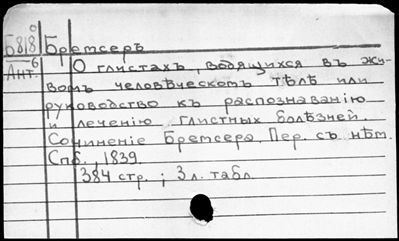 Б818 Бремсеръ
Ант. 6
О глистахъ, водящихся въ жи-
вомъ человѣческомъ тѣлѣ или
руководство къ распознаванію
и леченію глистныхъ болѣзней.
Сочиненіе Бремсера. Пер. съ нѣм.
Спб., 1839.
384 стр.; 3 л. табл.